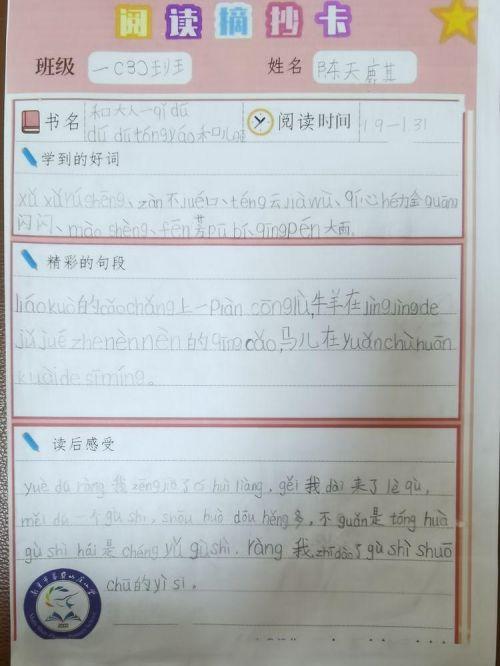 阅读摘抄卡
班级 一(3)班 姓名 陈天
书名 和大人一qǐ dú
dú dú tóngyáo和儿歌
阅读时间 1.9-1.31
学到的好词
xǔ xǔ rú shēng、zàn不jué口、téng云jià wù、qí心hé力、金guāng
闪闪、mào shèng、fēn芳pū bí、qīngpén大雨、
精彩的句段
liáokuò的cǎochǎng上一piàn cōnglǜ,牛羊在jìngjìngde
jǔ jué zhe nènnèn的qīng cǎo,马儿在yuǎnchùhuān
kuàide sīmíng。
读后感受
yuè dú ràng我zēngjiā了cí huì liàng,gěi我dài来了lè qù,
měi dú一个gù shi,shōu huò dōu hěng多,不guǎn是tóng huà
gù shì hái是cháng yǐ gù shì.ràng我zhīdào了gù shì shuō
chū的yì si。